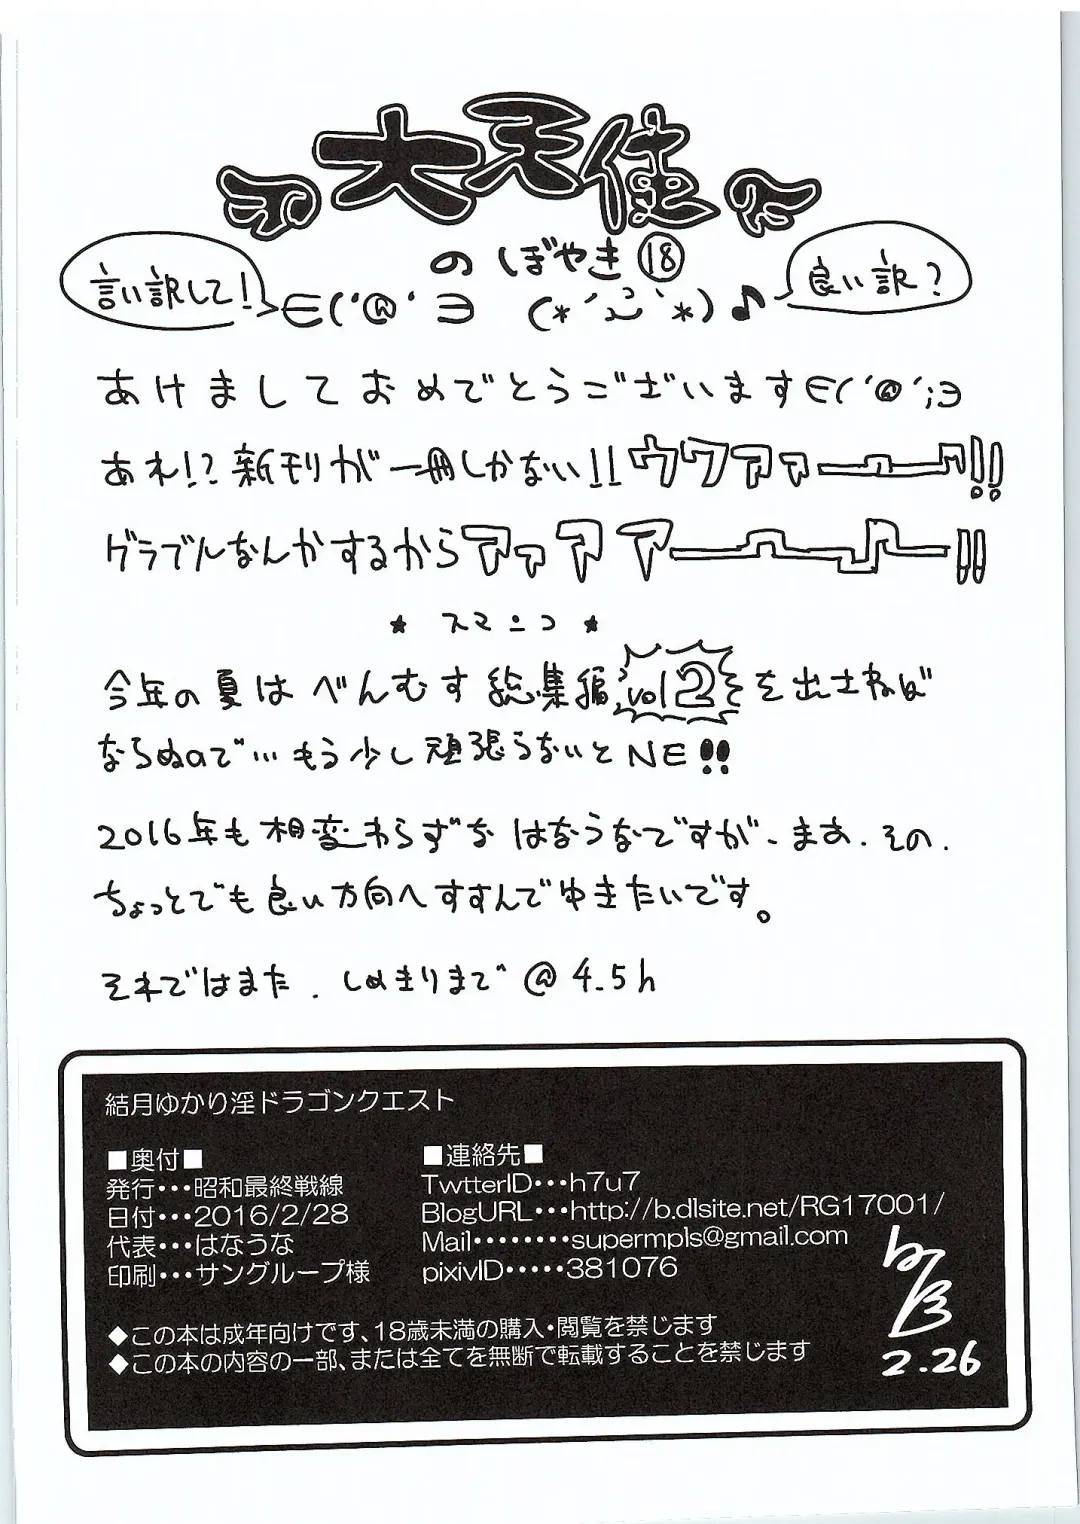 大天使
のぼやき⑱
言い訳して!
良い訳?
∈('@'∋ (*´ڡ`*)♪
あけましておめでとうございます∈('@';∋
あれ!?新刊が一冊しかない!!ウワアァーーー!!
グラブルなんかするからアァアアーーー!!
★ スマンコ ★
今年の夏はべんむす総集編vol2を出さねば
ならぬので…もう少し頑張らないとNE!!
2016年も相変わらずなはなうなですが、まあ.その.
ちょっとでも良い方向へすすんでゆきたいです。
それではまた.しめきりまで@4.5h
結月ゆかり淫ドラゴンクエスト
■奥付■
発行・・・昭和最終戦線
日付・・・2016/2/28
代表・・・はなうな
印刷・・・サングループ様
■連絡先■
TwtterID・・・h7u7
BlogURL・・・http://b.dlsite.net/RG17001/
Mail・・・・・・・・supermpls@gmail.com
pixivID・・・・・381076
◆この本は成年向けです、18歳未満の購入・閲覧を禁じます
◆この本の内容の一部、または全てを無断で転載することを禁じます
2.26